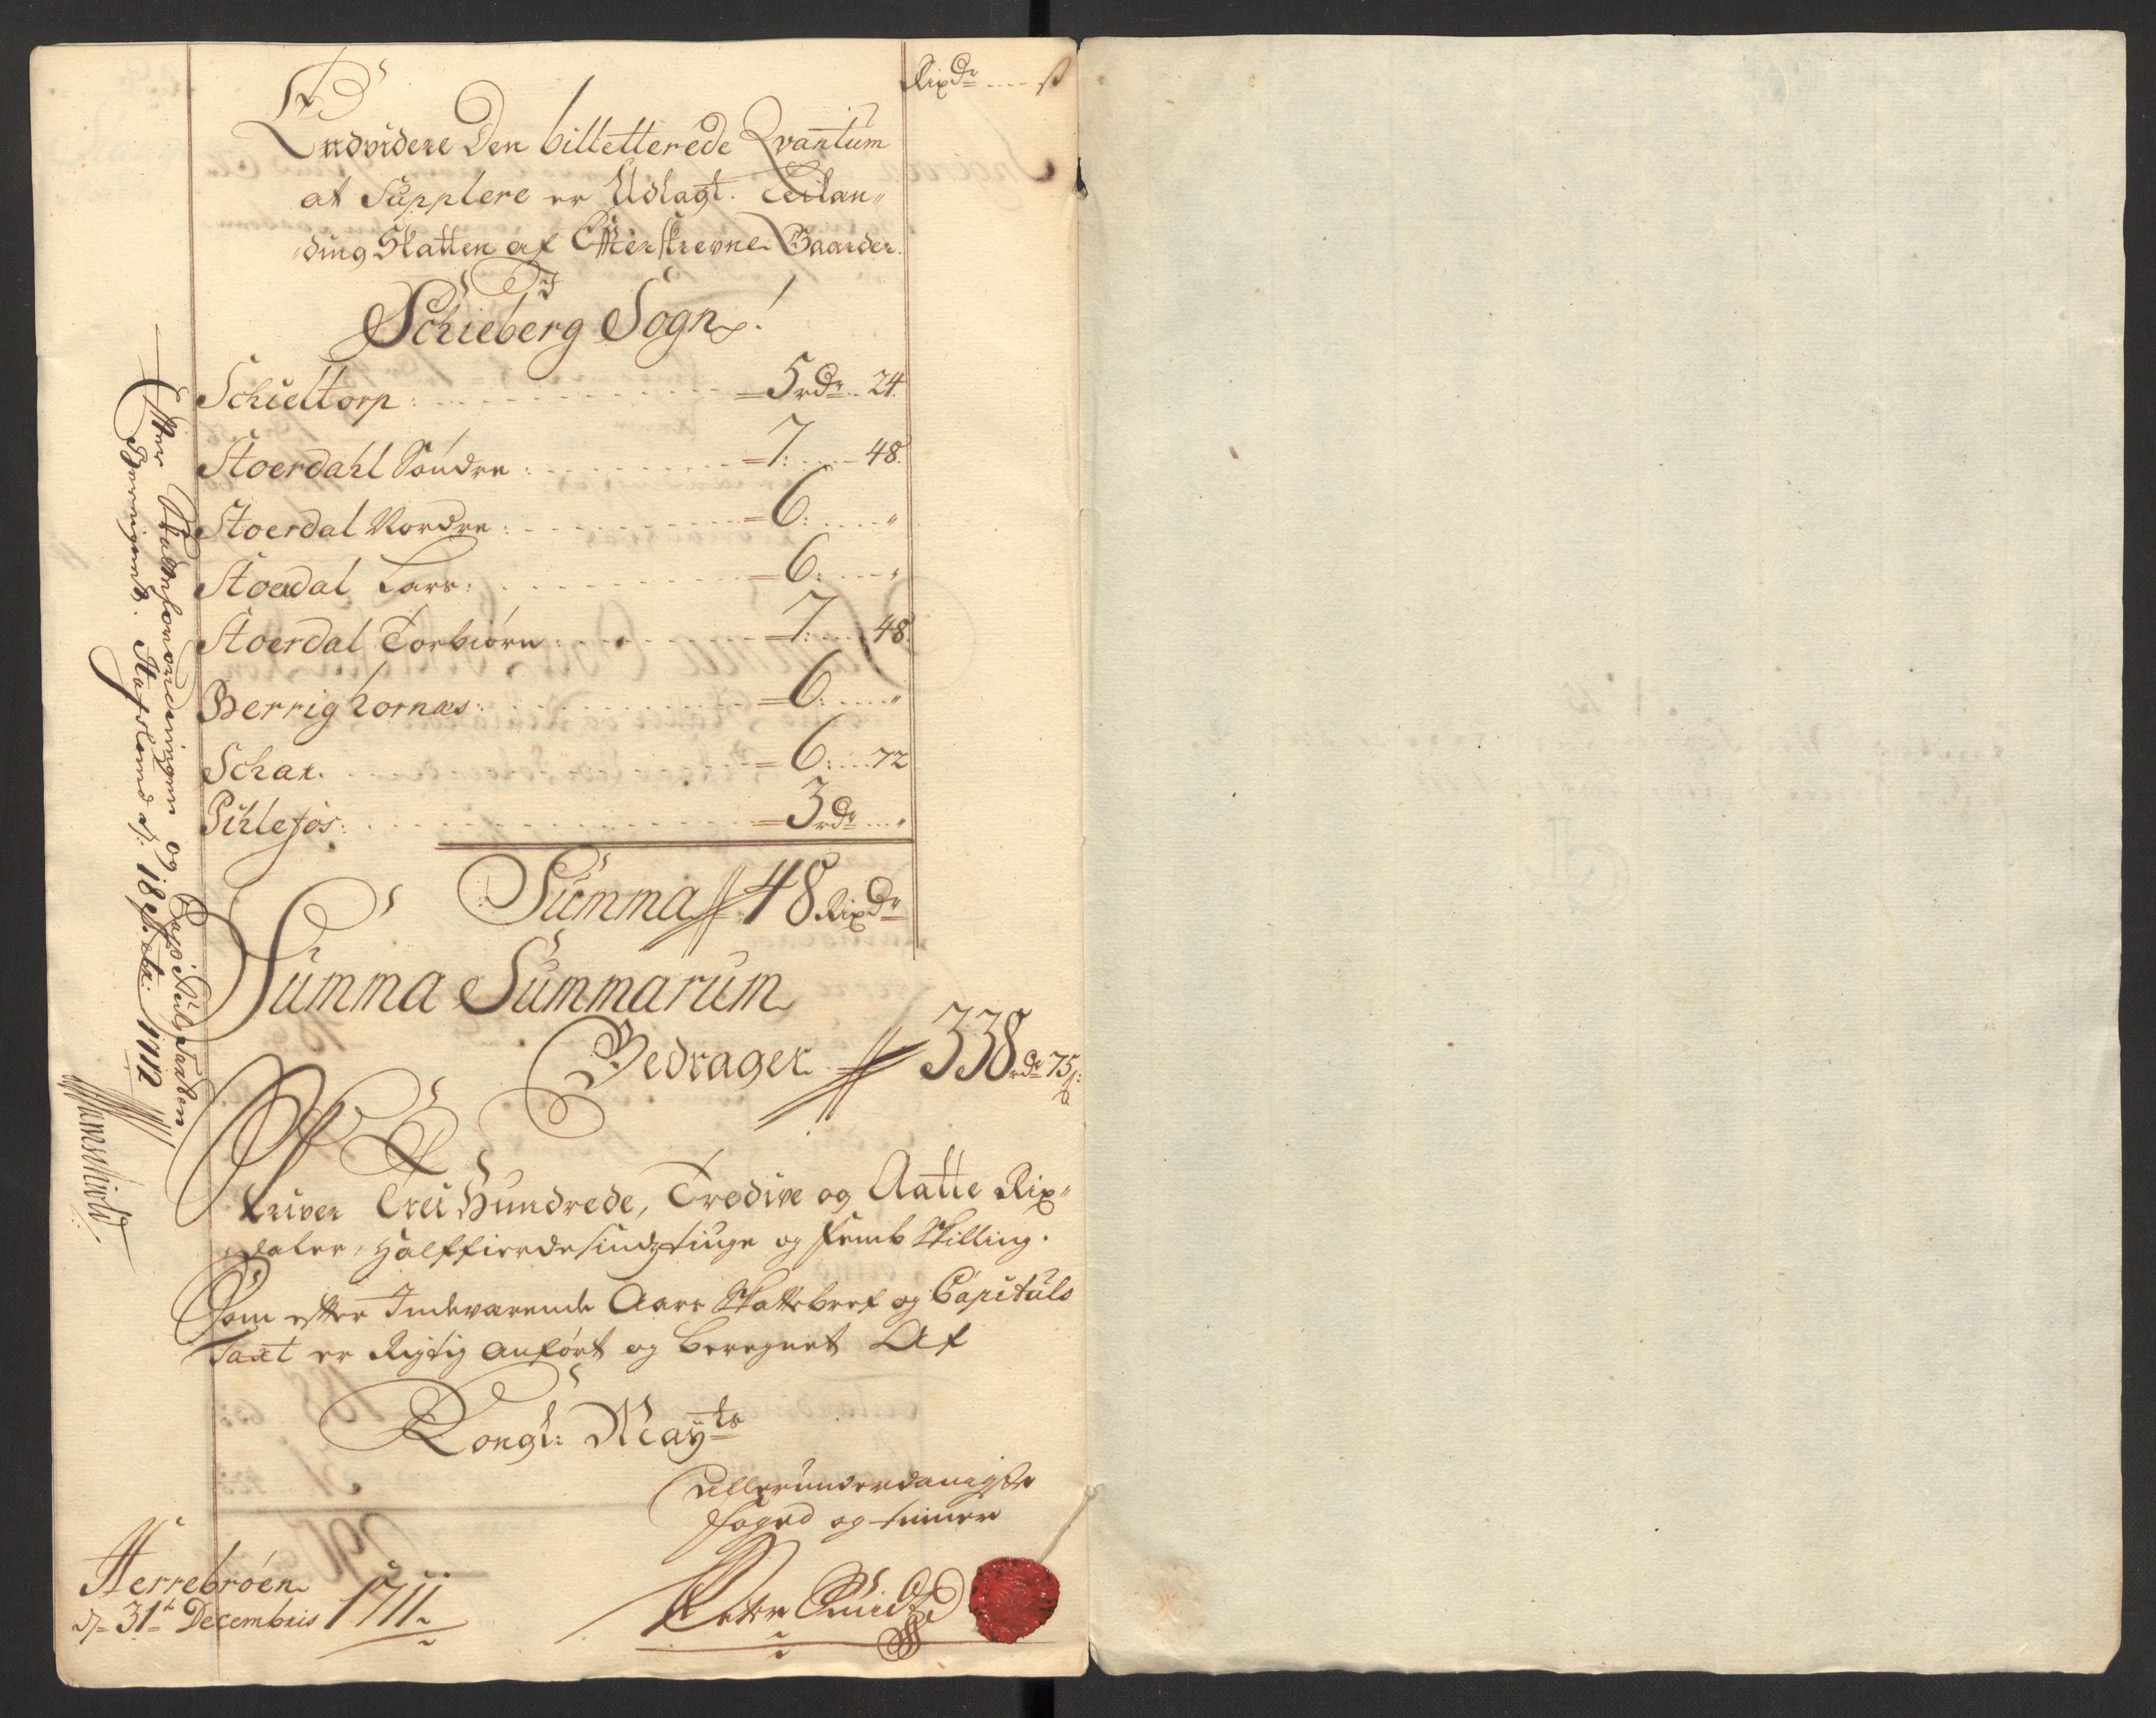 Rixdr ß
Endvidere Den billetterede Qvantum
at Supplere er Udlagt. Leilan„
„ding Skatten af Efterskrevne Gaarder.
I
Schieberg Sogn.
Schieltorp: 5rdr 24.
Stoerdahl Søndre: 7: 48.
Stoerdal Nordre: 6: „
Stoerdal Lars: 6: „
Stoerdal Torbiørn: 7: 48.
Berrig hornæs: 6: „
Schar. 6: 72
Pihlefos: 3rdr „
Summa 48 Rixdr
Summa Summarum
Bedrager 338rdr 75ß:
Skriver Trei Hundrede, Tredive og Aatte Rix„
daler, halffierdesindztiuge og femb Skilling.
Som efter Indeværende Aars Skattebref og Capituls
Taxt er Rigtig anført og beregnet Af
Kongl: Mayts
allerunderdanigste
foged og tiener
Peter Smidt
Herrebrøen
dn 31te Decembris 1711.
Efter og
Stiftamtmanden
1712